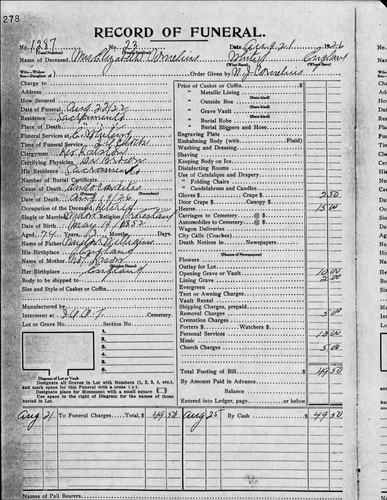 278
RECORD OF FUNERAL.
No. 1257 No. 22 Date Aug. 21
Name of Deceased, Mrs Elizabeth Cornelius White England
Order Given by N. J. Cornelius
Charge to
Address
How Secured
Date of Funeral Aug 22/26
Residence Sacramento
Place of Death
Funeral Services at
Time of Funeral Service
Clergyman
Certifying Physician Dr Brown
His Residence Sacramento
Number of Burial Certificate
Cause of Death
Date of Death Aug
Occupation of the Deceased Retired
Single or Married Widow Religion Protestant
Date of Birth May 19 1852
Aged 74 Years 3 Months, Days.
Name of Father
His Birthplace England
Name of Mother Not Known
Her Birthplace England
Body to be shipped to
Size and Style of Casket or Coffin
Manufactured by
Interment at I.O.O.F. Cemetery.
Lot or Grave No. Section No.
1
2
3
4
5
6
Diagram of Lot or Vault
Designate all Graves in Lot with Numbers (1, 2, 3, 4, etc.),
and mark space for this Funeral with a cross (+).
Designate place for Monument with a small square
Use space to the right of Diagram for the names of those
buried in Lot.
Price of Casket or Coffin $
" Metallic Lining
" Outside Box
" Grave Vault
" Burial Robe
" Burial Slippers and Hose
Engraving Plate
Embalming Body (with Fluid)
Washing and Dressing
Shaving
Keeping Body on Ice
Disinfecting Rooms
Use of Catafalque and Drapery
" Folding Chairs
" Candelabrum and Candles
Gloves $ Crape $ 2.50
Door Crape $ Canopy $
Hearse 15 00
Carriages to Cemetery @ $
Automobiles to Cemetery @ $
Wagon Deliveries
City Calls (Coaches) @ $
Death Notices in Newspapers
(Names of Newspapers)
Flowers
Outlay for Lot
Opening Grave or Vault 10 00
Lining Grave 2 00
Evergreen
Tent or Awning Charges
Vault Rental
Shipping Charges, prepaid
Removal Charges 5 00
Cremation Charges
Porters $ Watchers $
Personal Services 10 00
Music
Church Charges 5 00
Total Footing of Bill $ 49 50
By Amount Paid in Advance
Balance
Entered into Ledger, page or below.
Aug 21 To Funeral Charges Total, $ 49 50 Aug 25 By Cash $ 49 50
Names of Pall Bearers